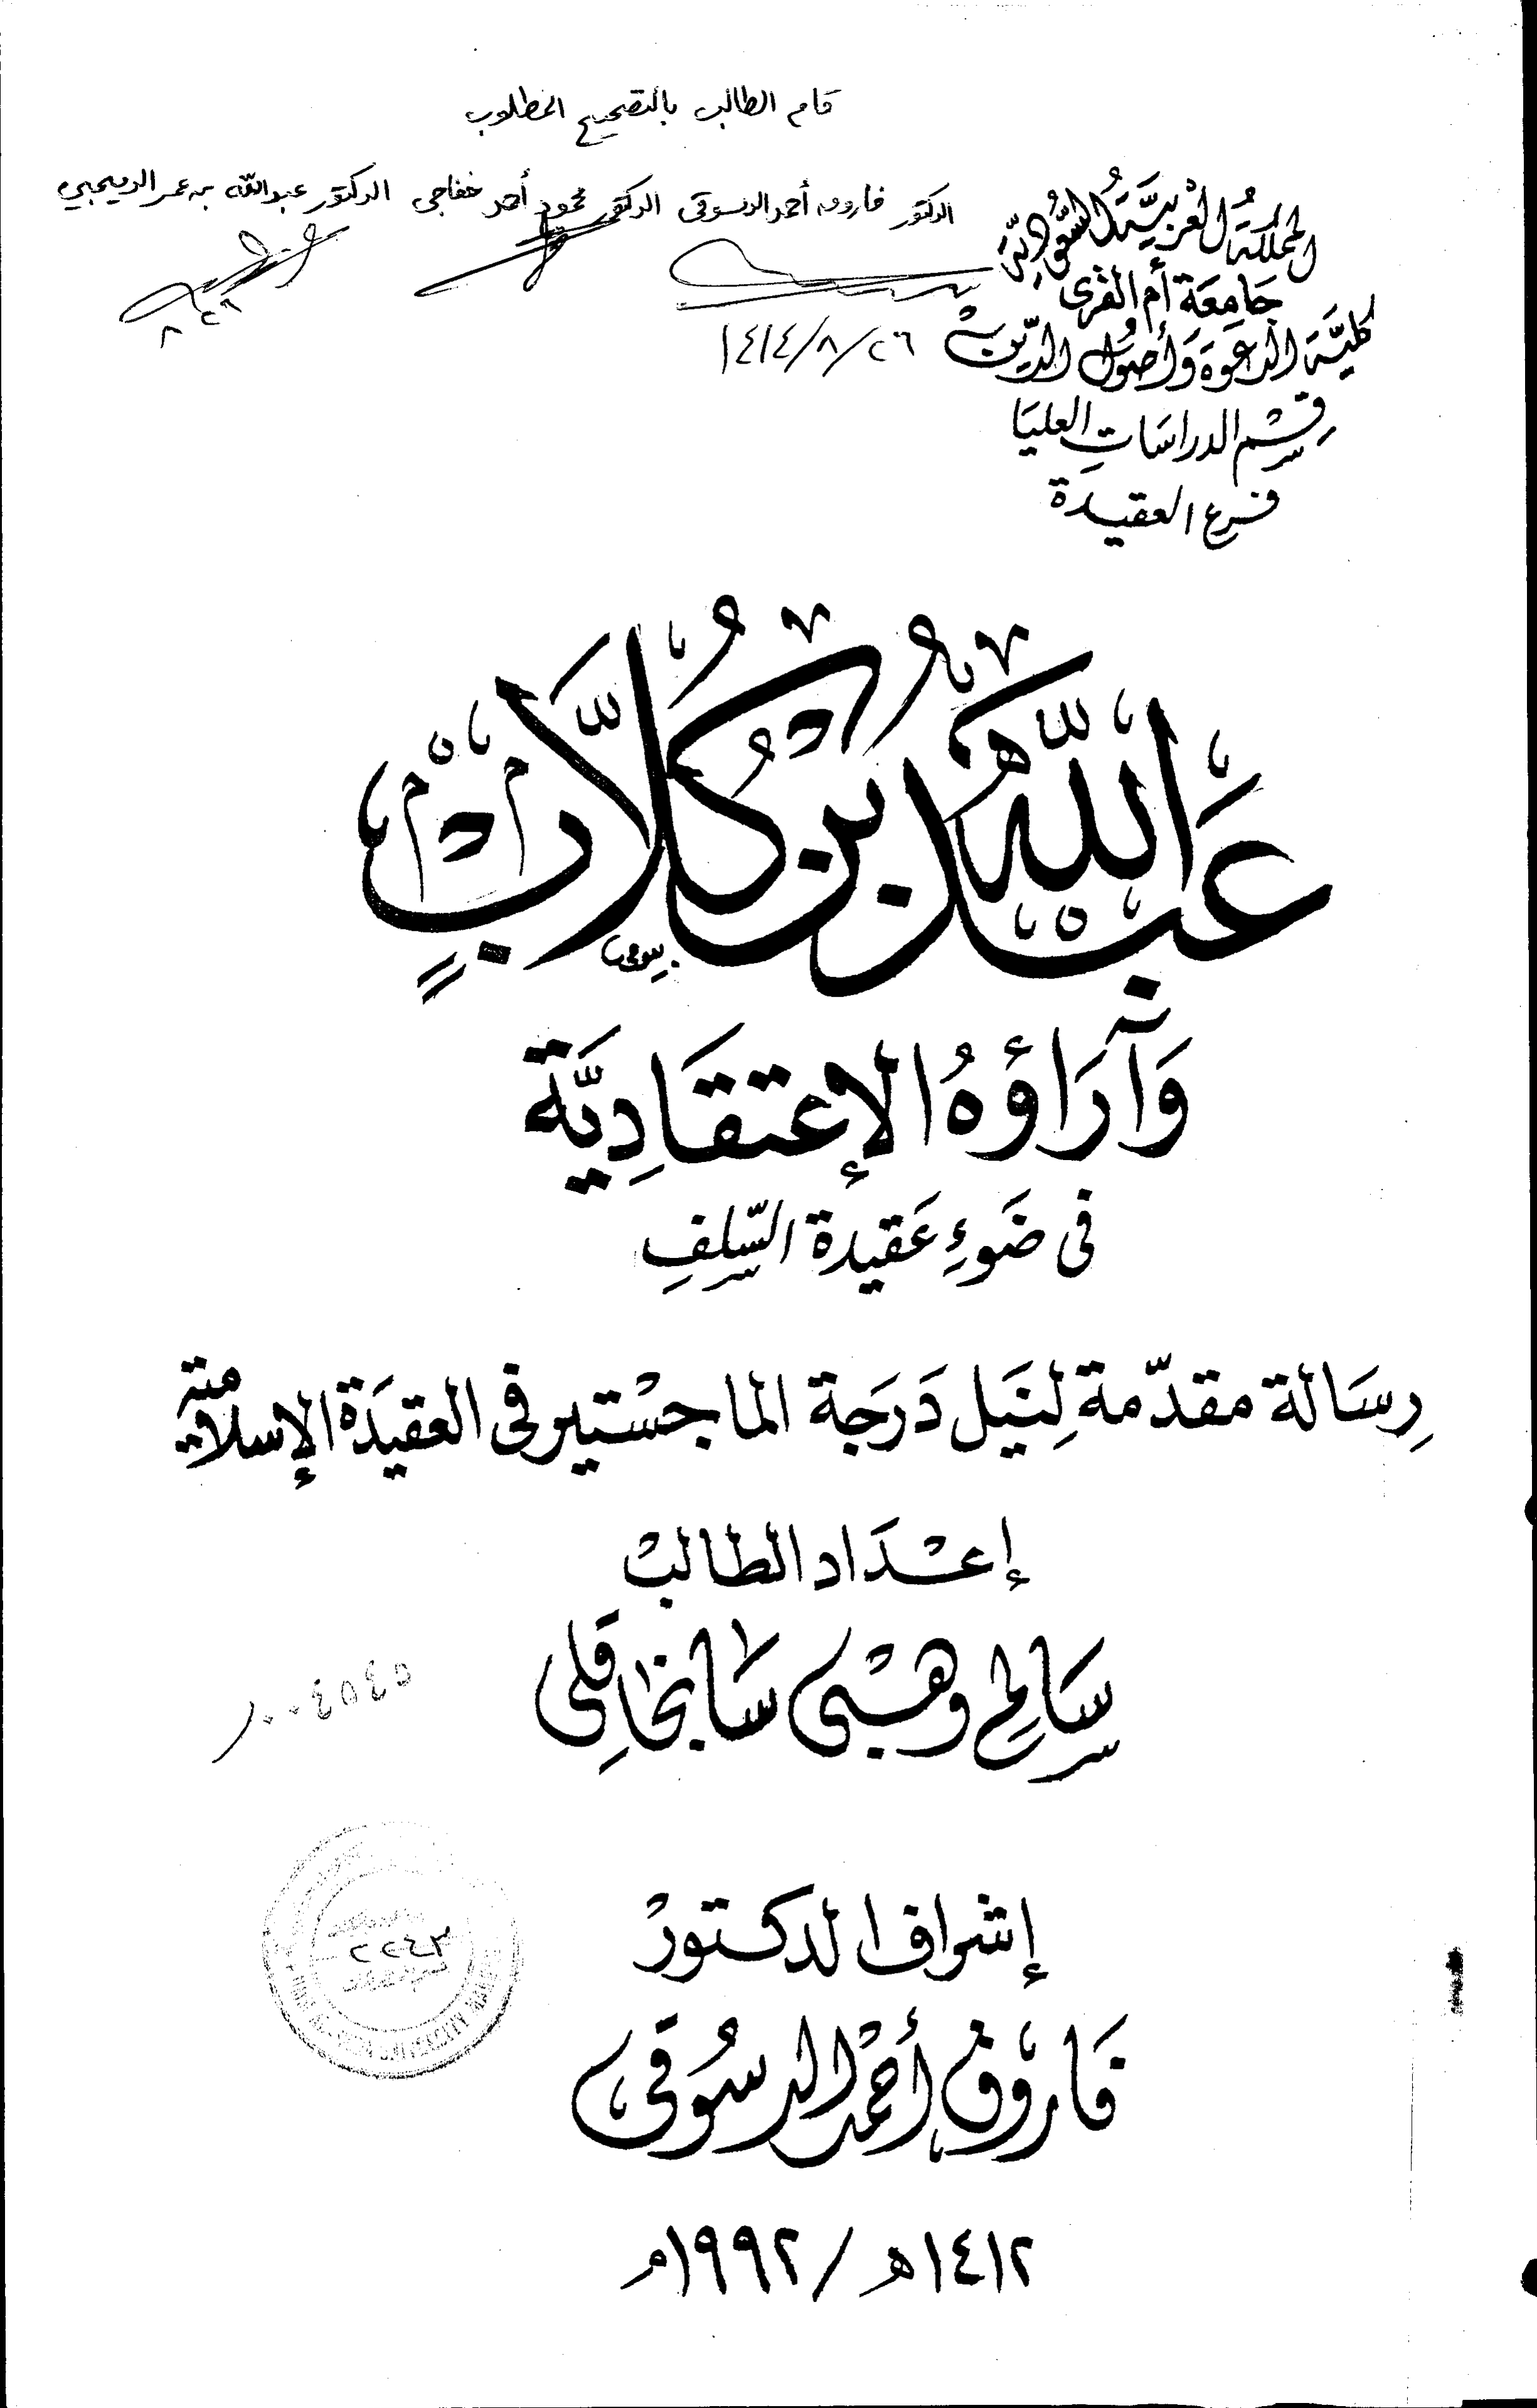 قام الطالب بالتصحيح المطلوب
الدكتور فاروق أحمد الدسوقى الدكتور محمود أحمد خفاجى الدكتور عبدالله بن عمر الدميجي
١٤١٤/٨/٢٦
المملكة العربيَّة السُّعوديَّة
جَامِعَة أم القرى
كليَّة الدعوَة وَأصُول الدِّين
قِسْم الدراسَاتِ العليَا
فرع العقيدة
عَبْدُ اللَّه بْنُ كُلَّابٍ
وَآرَاؤهُ الإعتقَادِيَّة
فى ضَوءِ عَقيدة السَّلفِ
رِسَالة مقدّمة لِنَيل دَرَجَة الماجسْتير فى العقيَدَة الإسلاميَّة
إعْدَاد الطالبْ
سَالم وهْبى سَانجَاقلى
١٠٠٤٥٤٥
إشراف الدكتورْ
٢٢٤٣
فَاروق أحْمَد الدسُوقى
١٤١٢ھ / ١٩٩٢م